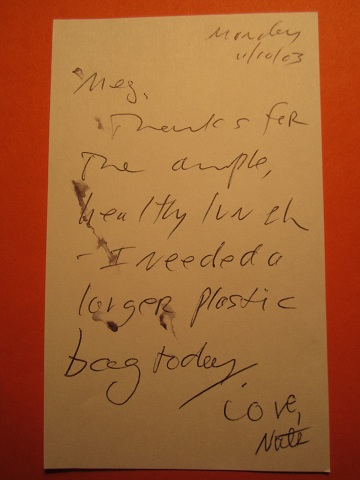 Monday
11/10/03
Meg,
Thanks for
the ample,
healthy lunch
- I needed a
larger plastic
bag today.
Love,
Nate